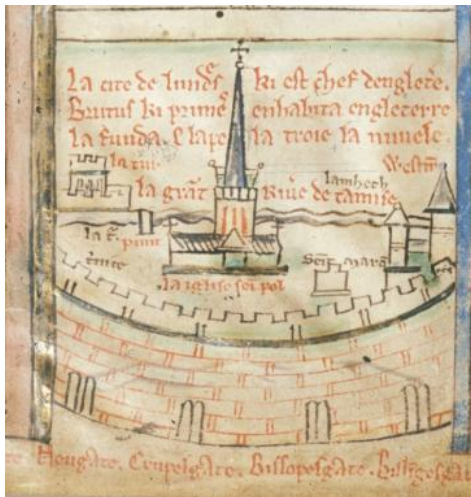 La cite de lundr̃ ki est chef dengletẽ.
Brutus ki primẽs enhabita engleterre
la funda. E lapela troie la nuvele.
la tur
Westm̃
lambeth
la grãt Rivẽ de tamise
la t̃
punt
trinite
Seint Marã
la iglise sei pol
Neugate. Crupelgate. Bissopesgate. Billigesgate